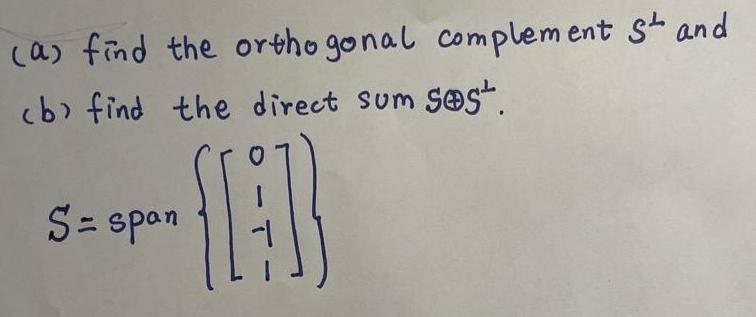 (a) find the orthogonal complement S⊥ and
(b) find the direct sum S⊕S⊥.
S = span { [ 0
1
-1
1 ] }